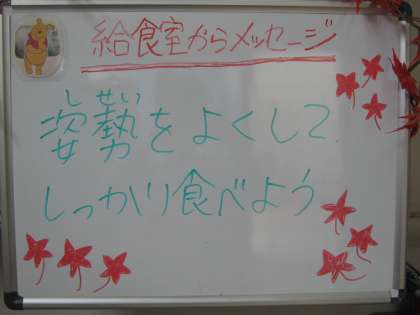 給食室からメッセージ
しせい
姿勢をよくして
しっかり食べよう